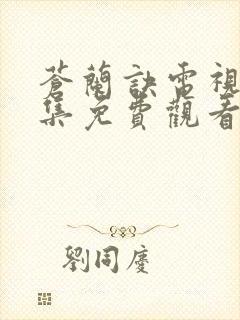 蒼蘭訣電視
集免費觀看
劉同慶